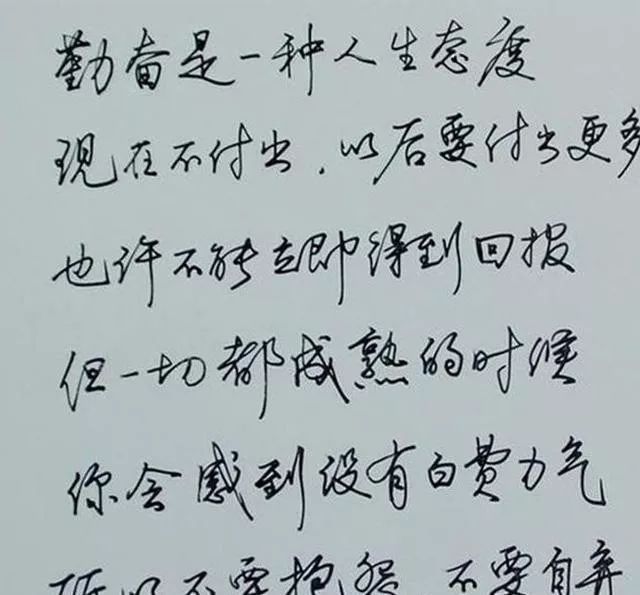 勤奋是一种人生态度
现在不付出,以后要付出更多
也许不能立即得到回报
但一切都成熟的时候
你会感到没有白费力气
所以不要抱怨 不要自弃